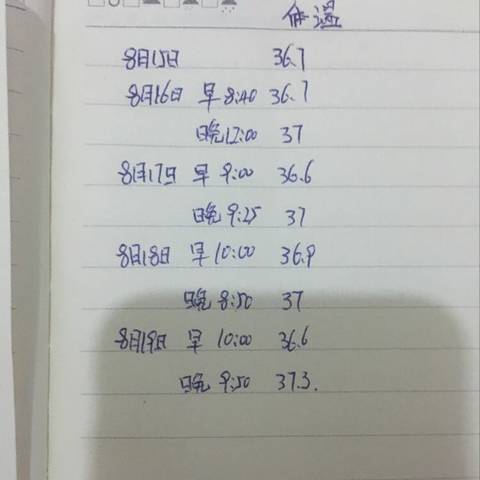 体温
8月15日 36.7
8月16日 早 8:40 36.7
晚12:00 37
8月17日 早 9:00 36.6
晚 9:25 37
8月18日 早 10:00 36.9
晚 8:50 37
8月19日 早 10:00 36.6
晚 9:50 37.3.